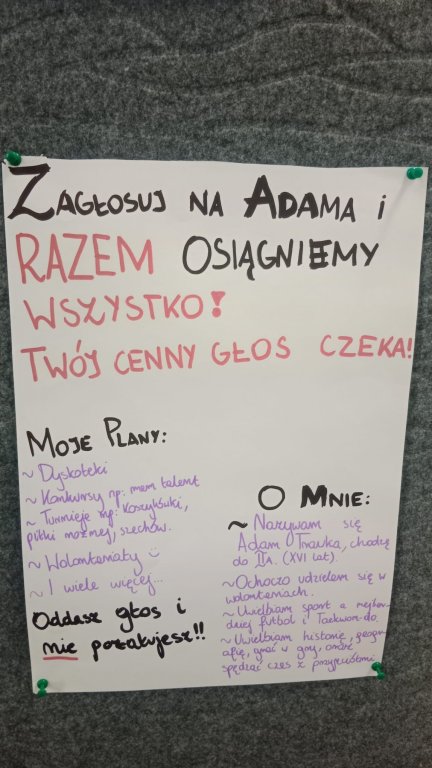 ZAGŁOSUJ NA ADAMA i
RAZEM OSIĄGNIEMY
WSZYSTKO!
TWÓJ CENNY GŁOS CZEKA!
MOJE PLANY:
~ Dyskoteki
~ Konkursy np: mam talent
~ Turnieje np: koszykówki,
piłki nożnej, szachów.
~ Wolontariaty
~ I wiele więcej...
Oddasz głos i
nie pożałujesz!!
O MNIE:
~ Nazywam się
Adam Trawka, chodzę
do IIa. (XVI lat).
~ Ochoczo udzielam się w
wolontariach.
~ Uwielbiam sport a najbar-
dziej futbol i Taekwon-do.
~ Uwielbiam historię, geogr-
afię, grać w gry, oraz
spędzać czas z przyjaciółmi.